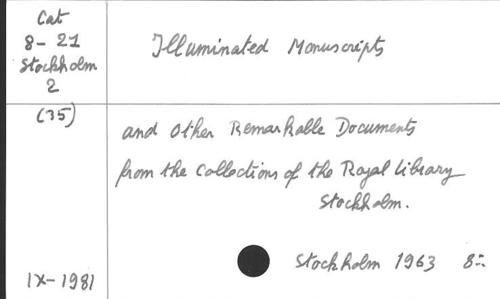 Cat
8-21
Stockholm
2
Illuminated Manuscripts
(35)
and Other Remarkable Documents
from the Collections of the Royal Library
Stockholm.
Stockholm 1963 8:-
IX-1981